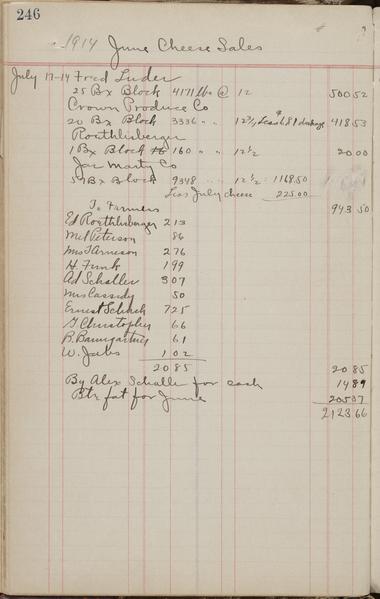 246
1914 June Cheese Sales
July 17-14 Fred Luder
25 Bx Block 4171 lbs @ 12 500 52
Crown Produce Co
20 Bx Block 3336 " " 12 3/4 Less 6.81 418 53
Roethlisberger
1 Bx Block 160 " " 12 1/2 20 00
Jac Marty Co
Bx Block 9348 " " 12 1/2 1168.50
Less July cheese 225.00
943 50
To Farmers
Ed Roethlisberger 213
Mel Peterson 86
Mrs T Arneson 276
H. Funk 199
Ad Schaller 307
Mrs Cassidy 50
Ernest Schuch 725
G Christopher 66
B. Baumgartner 61
W. Jabs 102
2085 20 85
By Alex Schalle for cash 14 89
Btr fat for June 205 37
2123 66